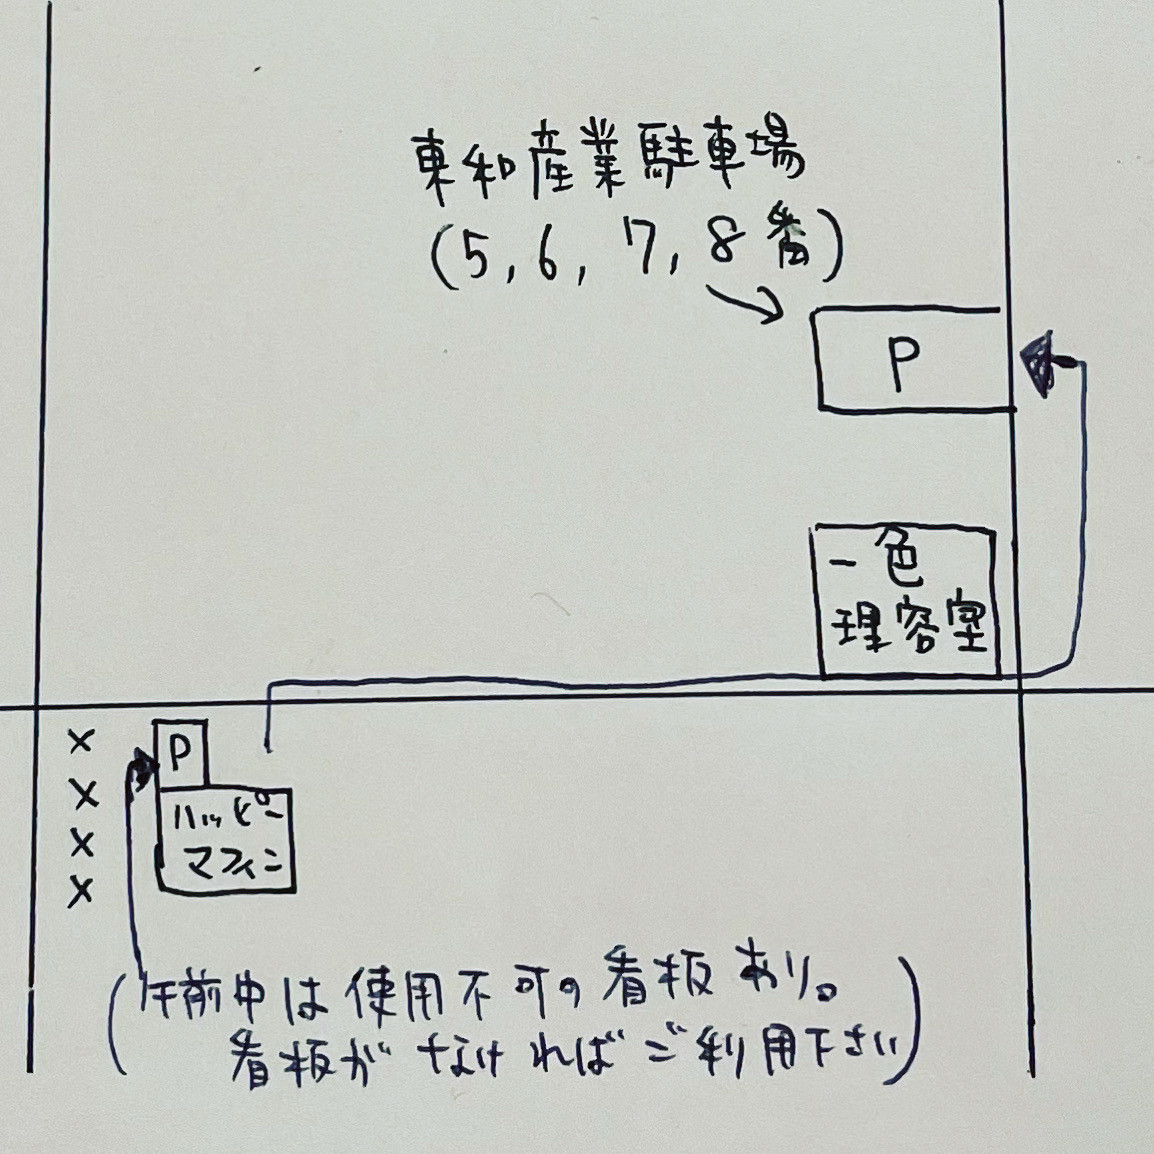 東和産業駐車場
(5, 6, 7, 8番)
P
一色
理容室
×
×
×
×
P
ハッピー
マフィン
(午前中は使用不可の看板あり。
看板がなければご利用下さい)